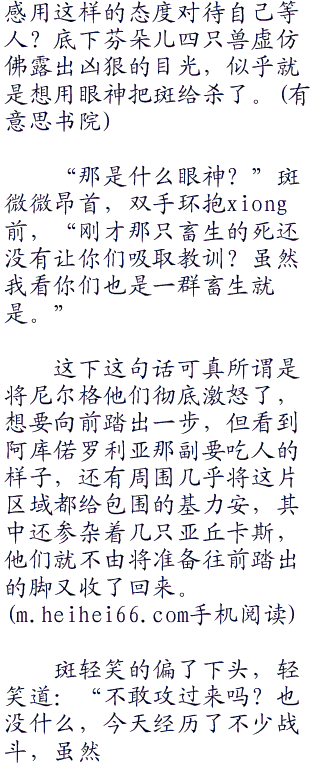 感用这样的态度对待自己等
人？底下芬朵儿四只兽虚仿
佛露出凶狠的目光，似乎就
是想用眼神把斑给杀了。(有
意思书院)
“那是什么眼神？”斑
微微昂首，双手环抱xiong
前，“刚才那只畜生的死还
没有让你们吸取教训？虽然
我看你们也是一群畜生就
是。”
这下这句话可真所谓是
将尼尔格他们彻底激怒了，
想要向前踏出一步，但看到
阿库偌罗利亚那副要吃人的
样子，还有周围几乎将这片
区域都给包围的基力安，其
中还参杂着几只亚丘卡斯，
他们就不由将准备往前踏出
的脚又收了回来。
(m.heihei66.com手机阅读)
斑轻笑的偏了下头，轻
笑道：“不敢攻过来吗？也
没什么，今天经历了不少战
斗，虽然